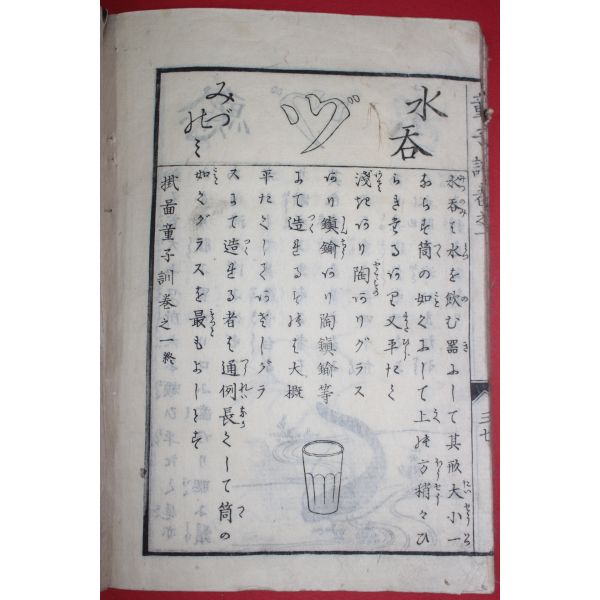 水呑
ヅ
みづ
のミ
水呑は水を飲む器にして其形大小一
ならず筒の如くにして上の方稍々ひ
らき有るあり又平たく
浅きあり陶ありグラス
あり鍮鍮あり陶鍮鍮等
にて造れるものは大概
平たくしてあさしグラ
スにて造れる者は通例長くして筒の
如くグラスを最もよしとす
掛畾童子訓巻之一終
童子訓巻之一
三七